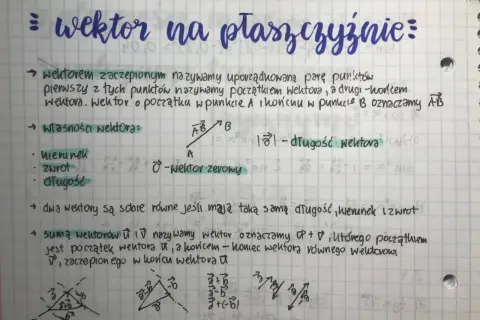 wektor na płaszczyźnie
→ wektorem zaczepionym nazywamy uporządkowaną parę punktów
pierwszy z tych punktów nazywamy początkiem wektora, a drugi - końcem
wektora. wektor o początku w punkcie A i końcu w punkcie B oznaczamy AB
→ własności wektora:
AB
B
A
|v⃗| - długość wektora
· kierunek
· zwrot
0⃗ - wektor zerowy
· długość
→ dwa wektory są sobie równe jeśli mają taką samą długość, kierunek i zwrot
→ sumą wektorów u⃗ i v⃗ nazywamy wektor oznaczamy u⃗ + v⃗, którego początkiem
jest początek wektora u⃗, a końcem - koniec wektora równego wektorowi
v⃗, zaczepionego w końcu wektora u⃗